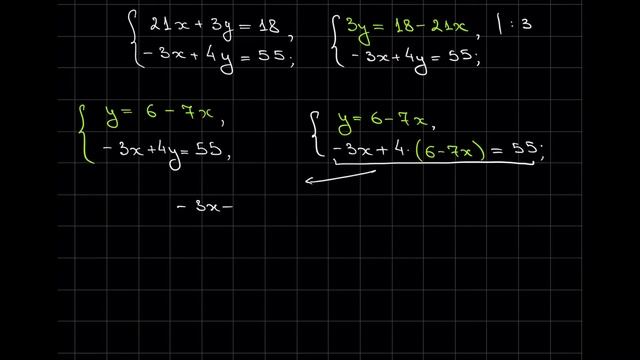 { 21x + 3y = 18,
- 3x + 4y = 55;
{ 3y = 18 - 21x, | : 3
- 3x + 4y = 55;
{ y = 6 - 7x,
- 3x + 4y = 55,
{ y = 6 - 7x,
- 3x + 4 · (6 - 7x) = 55;
- 3x -